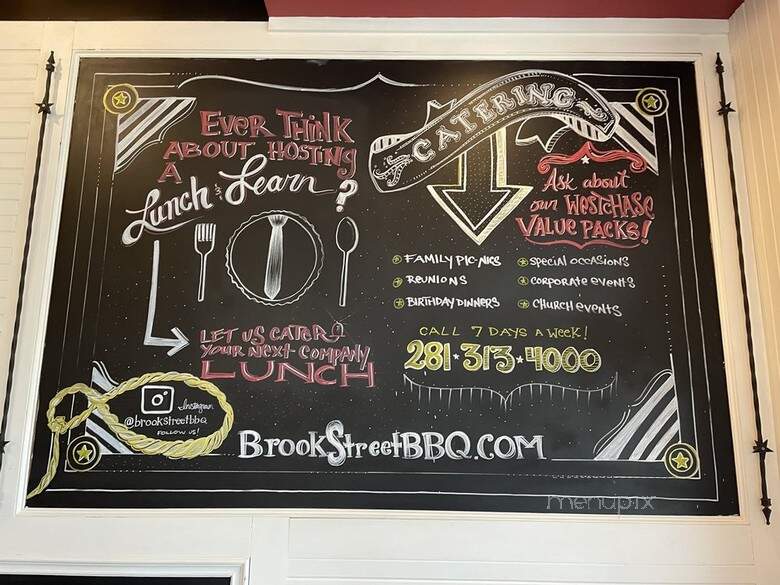 EVER THINK
ABOUT HOSTING
A
Lunch & Learn?
LET US CATER
YOUR NEXT COMPANY
LUNCH
Instagram
@brookstreetbbq
FOLLOW US!
CATERING
Ask about
our WESTCHASE
VALUE PACKS!
FAMILY PIC-NICS
REUNIONS
BIRTHDAY DINNERS
SPECIAL OCCASIONS
CORPORATE EVENTS
CHURCH EVENTS
CALL 7 DAYS A WEEK!
281·313·4000
BROOKSTREETBBQ.COM
menupix